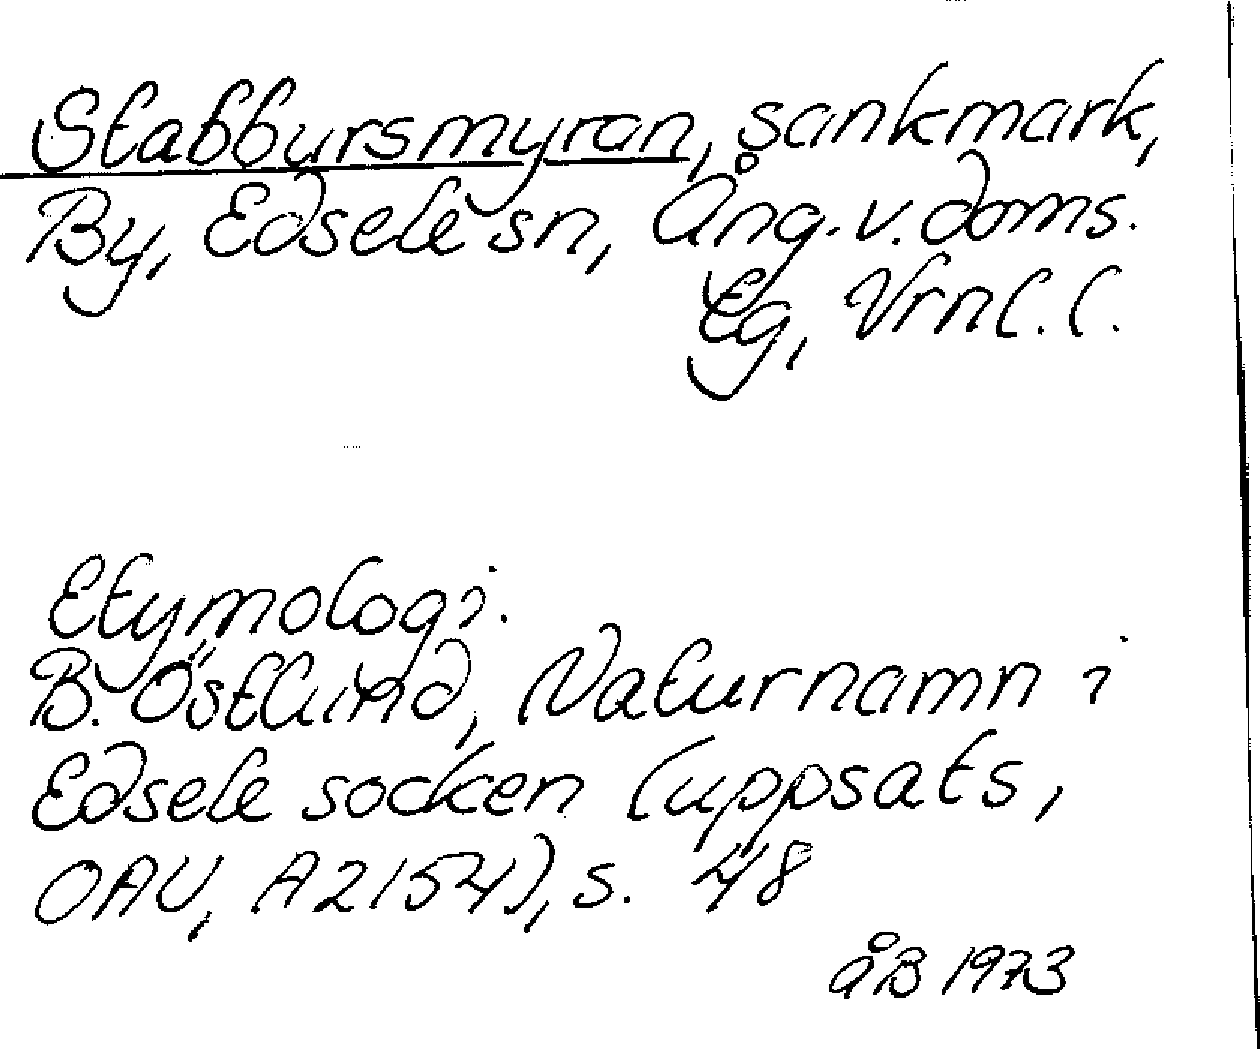 Stabbursmyran, sankmark,
By, Edsele sn, Ång. v. doms.
tg, Vrnl. l.
Etymologi.
B. Östlund, Naturnamn i
Edsele socken (uppsats,
OAU, A2154), s. 48
åB 1973